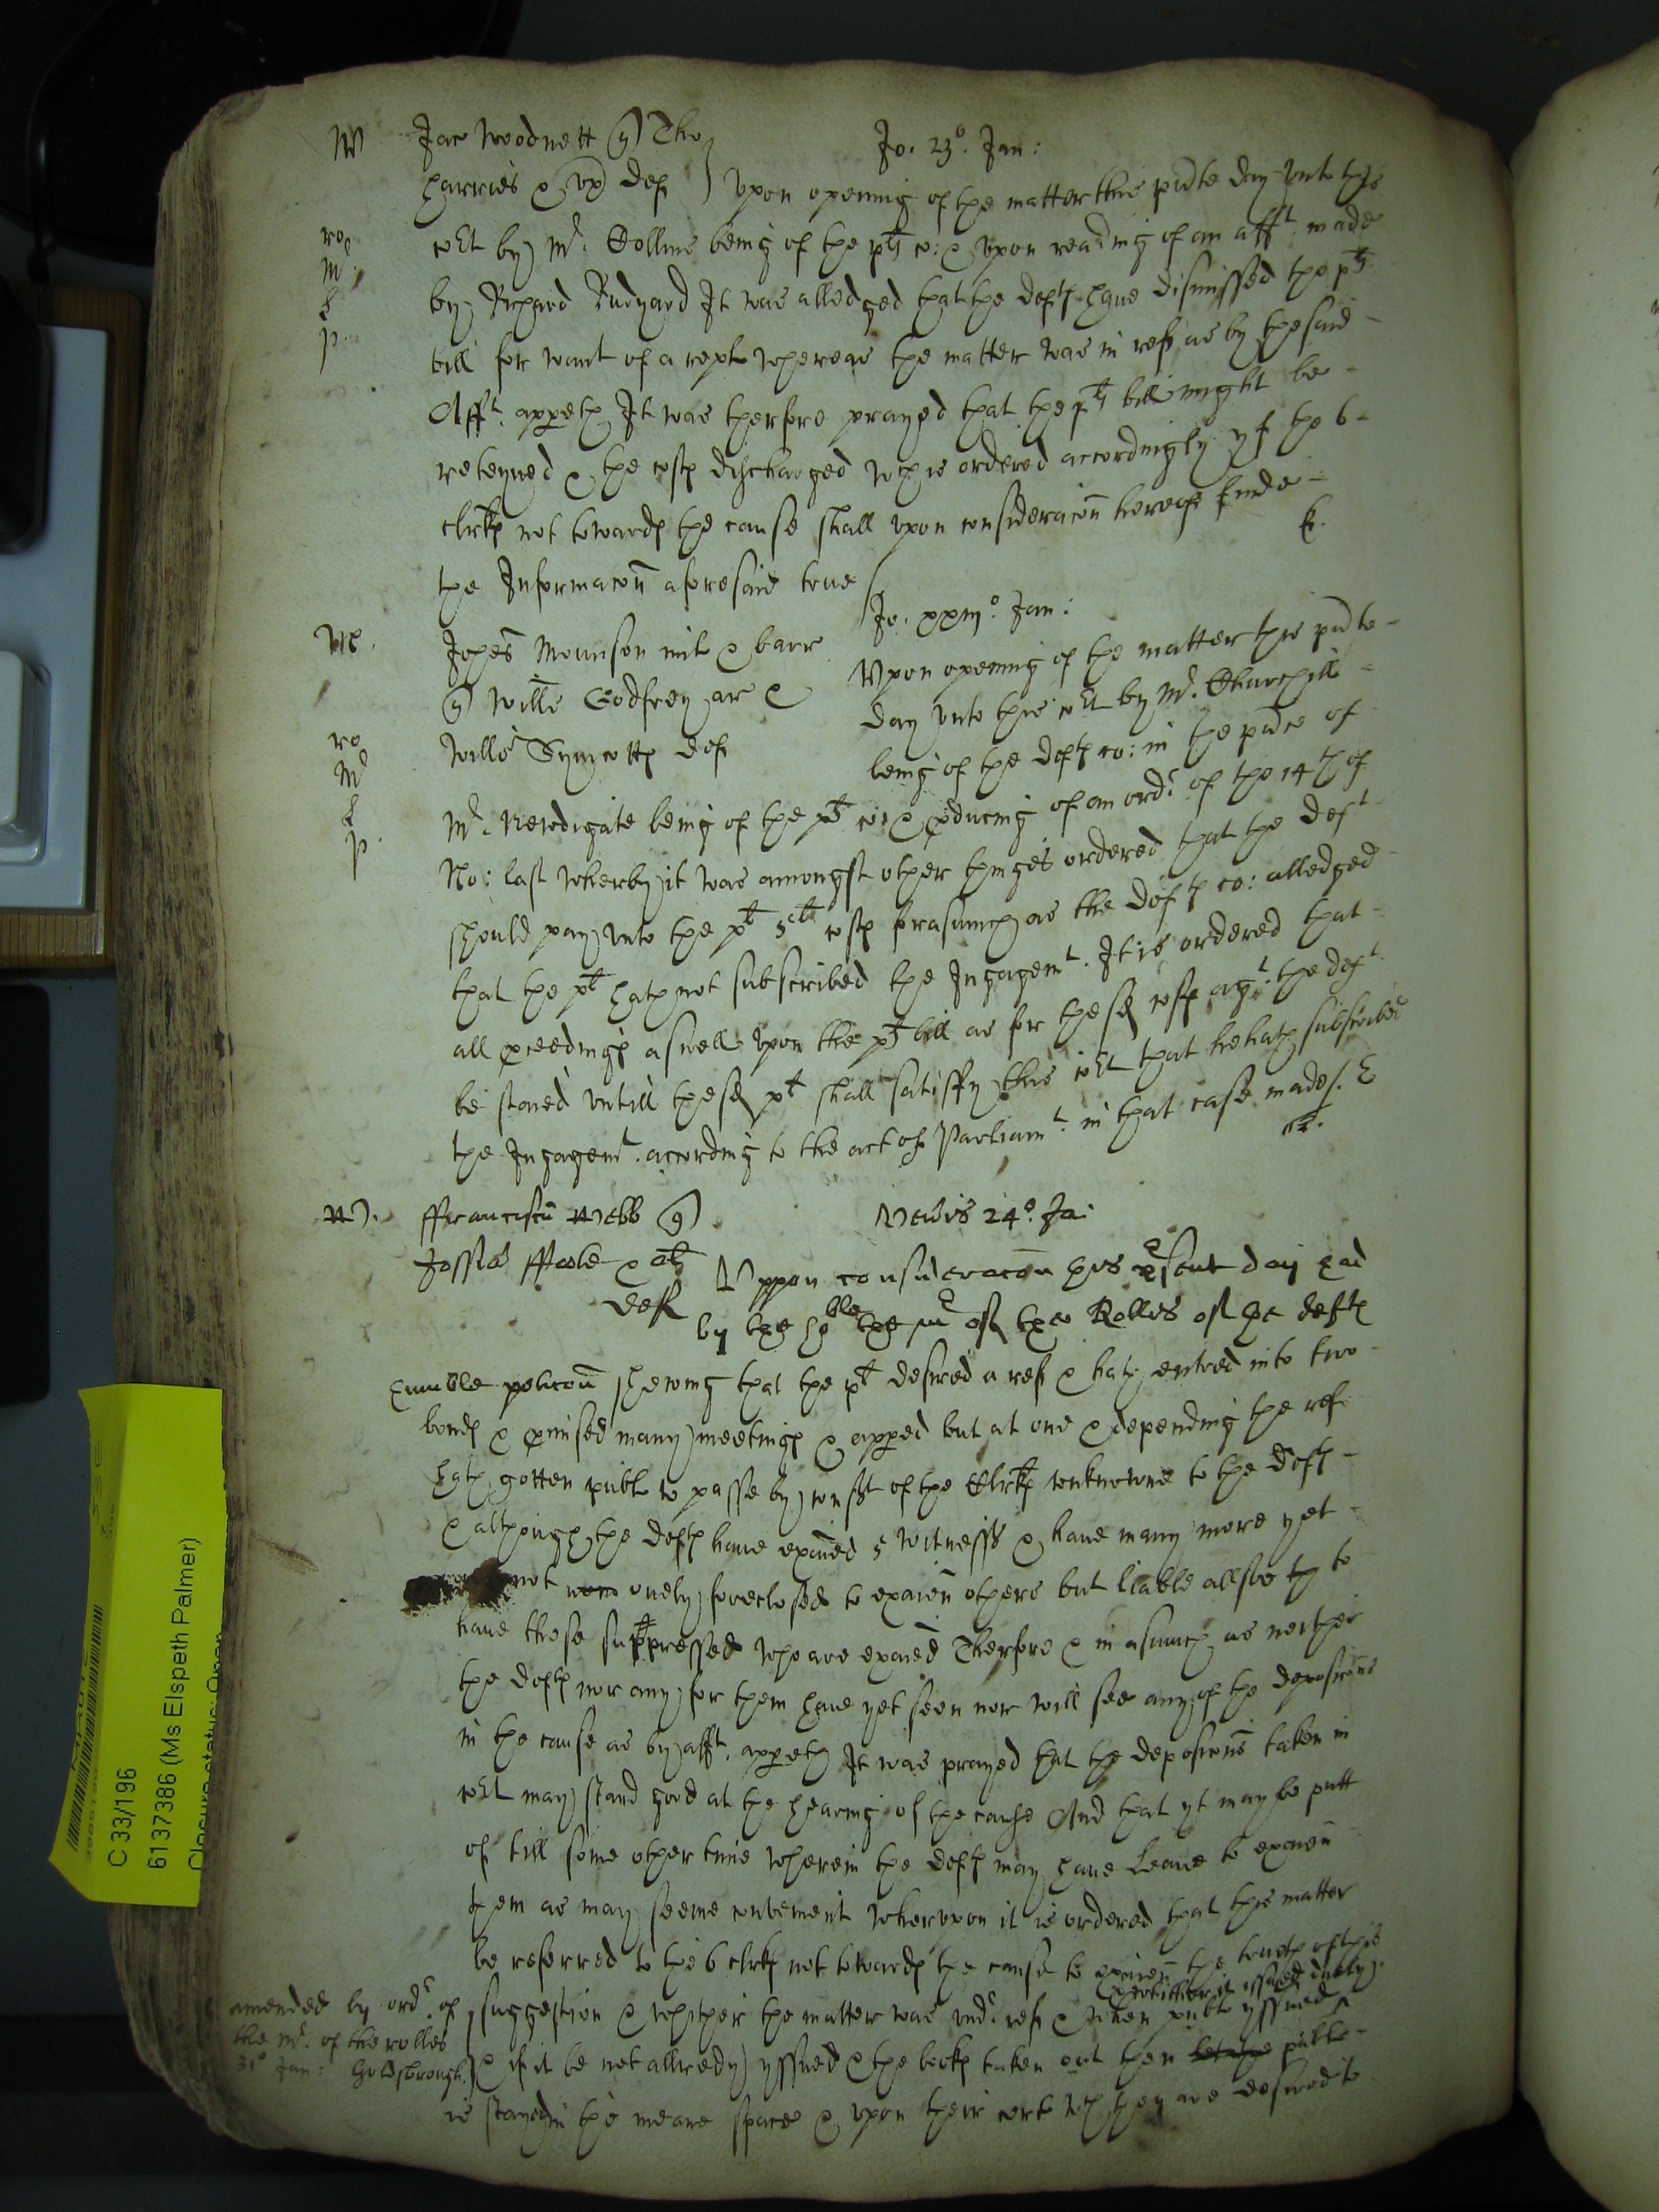 W Jac Woodnett q) Tho
Jo. 23º. Jan:
Harries & ux def } Upon opening of the matter this pnte day unto this
ro Mr L p.
cot by Mr. Collins being of the plts co: & upon reading of an afft. made
by Richard Rudyard It was alledged that the defts have dismissed the plts
bill for want of a repl whereas the matter was in ref as by the said
Afft. appeth It was therfore prayed that the plts bill might be
reteyned & the costs discharged wch is ordered accordingly yf the 6
clrks not towards the cause shall upon consideracon hereof finde
the Informacon aforesaid true
Jo. xxiijº. Jan:
M. Johes Mounson mil & barr
Upon opening of the matter this pnte
q) Willm Godfrey ar &
day unto this cot by Mr. Churchill
ro Mr L p.
Willm Symcotts def
being of the defts co: in the pnce of
Mr. Newdigate being of the plts co: & pducing of an ordr. of the 14th of
No: last wherby it was amongst other things ordered that the deft
should pay unto the plt 5li costs forasmuch as the defts co: alledged
that the plt hath not subscribed the Ingagemt. It is ordered that
all pceedings aswell upon the plts bill as for the sd costs agt. the deft
be stayed untill the sd plt shall satisfy this cot that he hath subscribed
the Ingagemt. according to the act of Parliamt. in that case made/.
W. ffranciscu Webb q)
Veneris 24º. Ja:
Jossia ffoole & alt
Uppon consideracon this psent day had
def
by the hoble the Mr of the Rolles of the defts
humble peticon shewing that the plt desired a ref & hath entred into two
bonds & pmised many meetings & apped but at one & depending the ref
hath gotten publ to passe by const of the Clrks unknowne to the defts
& although the defts have exaied 5 witnesss & have many more yet
not onely foreclosed to exaien others but liable allsoe to
have those suppressed who are exaied Therfore & in asmuch as neither
the defts nor any for them have yet seen nor will see any of the deposicons
in the cause as by afft. appeth It was prayed that the deposicons taken in
cot may stand good at the hearing of the cause And that yt may be putt
of till some other time wherein the defts may have leave to exaien
them as may seeme convenient wherupon it is ordered that this matter
be referred to the 6 clrks not towards the cause to exaien the truth of this
suggestion & whither the matter was undr. ref & when publ yssued
& whither it yssued duely
amended by ordr. of
the Mr. of the rolles
31º Jan: Goldsbrough.
& if it be not allredy yssued & the books taken out then publ
is stayed in the meane space & upon their cert wch they are desired to
C 33/196
6137386 (Ms Elspeth Palmer)
Closure status: Open